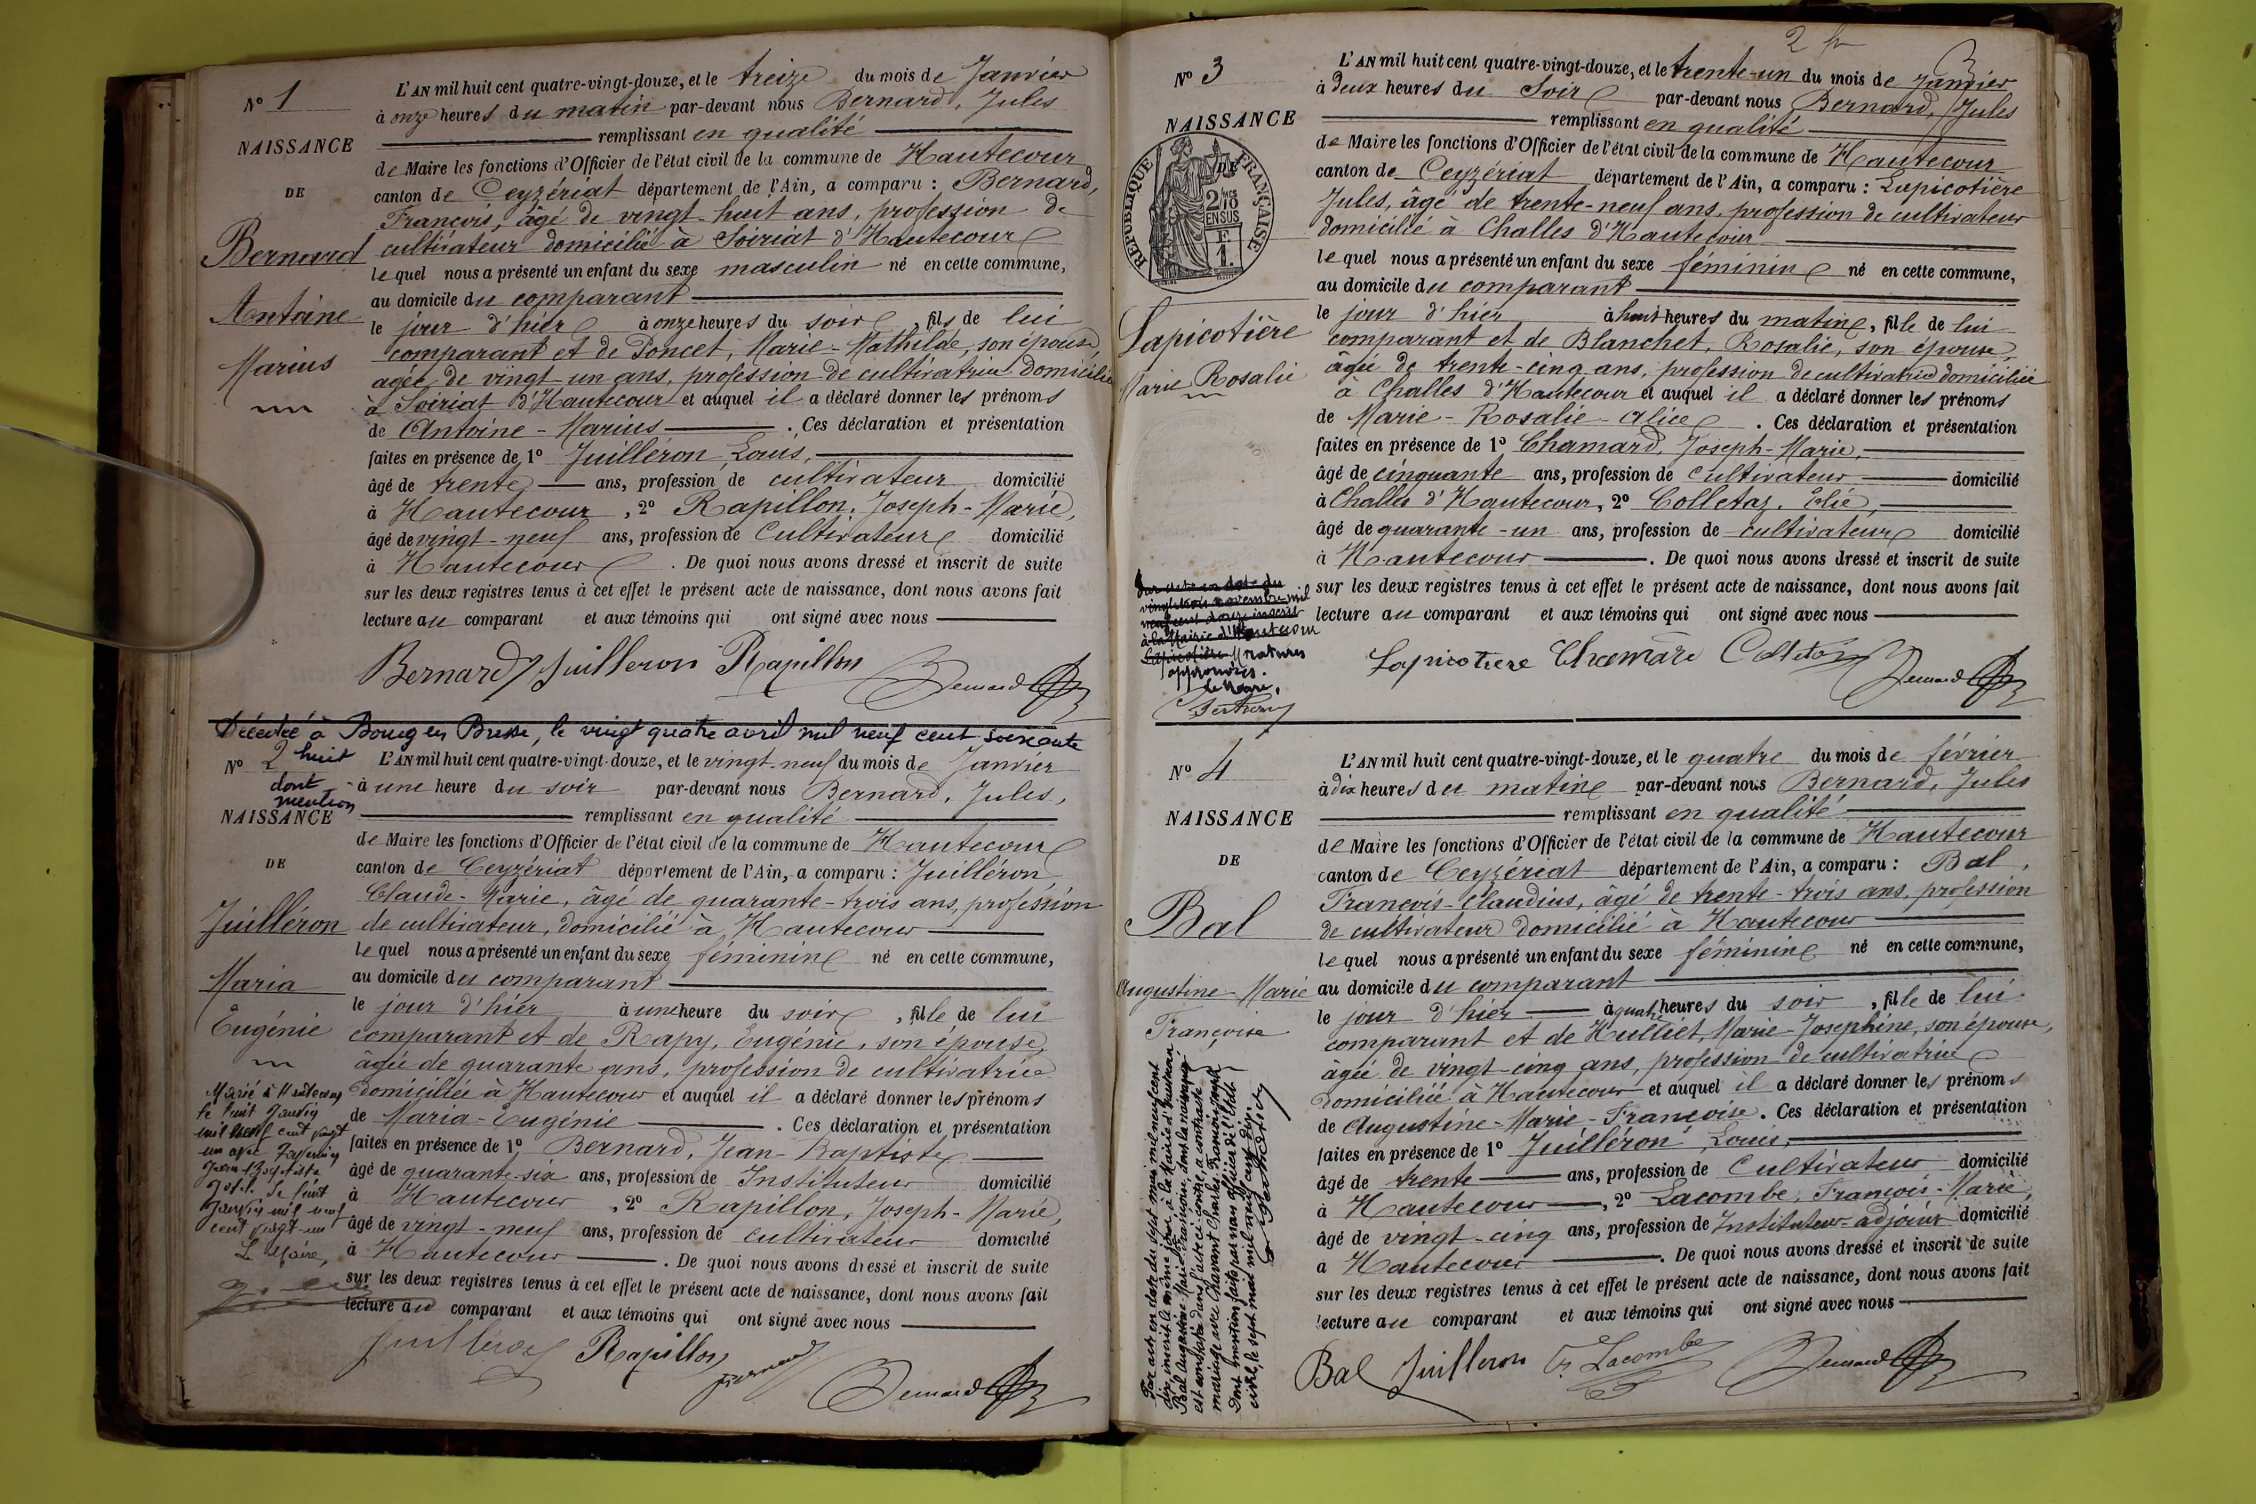 N° 1
NAISSANCE
DE
Bernard
Antoine
Marius
L'AN mil huit cent quatre-vingt-douze, et le treize du mois de Janvier
à onze heures du matin par-devant nous Bernard, Jules
remplissant en qualité
de Maire les fonctions d'Officier de l'état civil de la commune de Hautecour
canton de Ceyzériat département de l'Ain, a comparu : Bernard,
François, âgé de vingt-huit ans, profession de
cultivateur domicilié à Soiriat d'Hautecour
lequel nous a présenté un enfant du sexe masculin né en cette commune,
au domicile du comparant
le jour d'hier à onze heures du soir, fils de lui
comparant et de Poncet, Marie-Mathilde, son épouse,
agée de vingt-un ans, profession de cultivatrice domiciliée
à Soiriat d'Hautecour et auquel il a déclaré donner les prénoms
de Antoine-Marius. Ces déclaration et présentation
faites en présence de 1° Juilléron, Louis,
âgé de trente ans, profession de cultivateur domicilié
à Hautecour, 2° Rapillon, Joseph-Marie,
âgé de vingt-neuf ans, profession de Cultivateur domicilié
à Hautecour. De quoi nous avons dressé et inscrit de suite
sur les deux registres tenus à cet effet le présent acte de naissance, dont nous avons fait
lecture au comparant et aux témoins qui ont signé avec nous
Bernard Juilleron Rapillon Bernard
Décédée à Bourg en Bresse, le vingt quatre avril mil neuf cent soixante
huit
dont
mention
N° 2
NAISSANCE
DE
Juilléron
Maria
Eugénie
Marié à Hautecour
le huit Janvier
mil neuf cent vingt
un avec
Jean Baptiste
le huit
Janvier mil neuf
cent vingt-un
Le Maire,
L'AN mil huit cent quatre-vingt-douze, et le vingt-neuf du mois de Janvier
à une heure du soir par-devant nous Bernard, Jules,
remplissant en qualité
de Maire les fonctions d'Officier de l'état civil de la commune de Hautecour
canton de Ceyzériat département de l'Ain, a comparu : Juilléron
Claude-Marie, âgé de quarante-trois ans, profession
de cultivateur, domicilié à Hautecour
lequel nous a présenté un enfant du sexe féminin né en cette commune,
au domicile du comparant
le jour d'hier à une heure du soir, fille de lui
comparant et de Rapy, Eugénie, son épouse,
âgée de quarante ans, profession de cultivatrice
domiciliée à Hautecour et auquel il a déclaré donner les prénoms
de Maria-Eugénie. Ces déclaration et présentation
faites en présence de 1° Bernard, Jean-Baptiste
âgé de quarante-six ans, profession de Instituteur domicilié
à Hautecour, 2° Rapillon, Joseph-Marie,
âgé de vingt-neuf ans, profession de cultivateur domicilié
à Hautecour. De quoi nous avons dressé et inscrit de suite
sur les deux registres tenus à cet effet le présent acte de naissance, dont nous avons fait
lecture au comparant et aux témoins qui ont signé avec nous
Juilléron Rapillon Bernard Bernard
2
3
N° 3
NAISSANCE
DE
RÉPUBLIQUE FRANÇAISE
Lapicotière
Marie Rosalie
Par acte en date du
vingt-trois novembre mil
neuf cent douze inscrit
à la Mairie d'Hautecour
Lapicotière
approuvés.
Le Maire,
L'AN mil huit cent quatre-vingt-douze, et le trente-un du mois de Janvier
à deux heures du Soir par-devant nous Bernard, Jules
remplissant en qualité
de Maire les fonctions d'Officier de l'état civil de la commune de Hautecour
canton de Ceyzériat département de l'Ain, a comparu : Lapicotière
Jules, âgé de trente-neuf ans, profession de cultivateur
domicilié à Challes d'Hautecour
lequel nous a présenté un enfant du sexe féminin né en cette commune,
au domicile du comparant
le jour d'hier à huit heures du matin, fille de lui
comparant et de Blanchet, Rosalie, son épouse,
âgée de trente-cinq ans, profession de cultivatrice domiciliée
à Challes d'Hautecour et auquel il a déclaré donner les prénoms
de Marie-Rosalie-Alice. Ces déclaration et présentation
faites en présence de 1° Chamard, Joseph-Marie,
âgé de cinquante ans, profession de cultivateur domicilié
à Challes d'Hautecour, 2° Colletaz, Elie,
âgé de quarante-un ans, profession de cultivateur domicilié
à Hautecour. De quoi nous avons dressé et inscrit de suite
sur les deux registres tenus à cet effet le présent acte de naissance, dont nous avons fait
lecture au comparant et aux témoins qui ont signé avec nous
Lapicotiere Chamard Colletaz Bernard
N° 4
NAISSANCE
DE
Bal
Augustine-Marie
Françoise
Par acte en date du sept mai mil neuf cent
dix, inscrit le même jour, à la Mairie d'Hautecour
Bal Augustine Marie Françoise, dont la naissance
est constatée dans l'acte ci-contre, a contracté
mariage avec Chavant Charles François Joseph
Dont mention faite par nous officier de l'état
civil, le sept mai mil neuf cent dix.
L'AN mil huit cent quatre-vingt-douze, et le quatre du mois de février
à dix heures du matin par-devant nous Bernard, Jules
remplissant en qualité
de Maire les fonctions d'Officier de l'état civil de la commune de Hautecour
canton de Ceyzériat département de l'Ain, a comparu : Bal,
François-Claudius, âgé de trente-trois ans, profession
de cultivateur domicilié à Hautecour
lequel nous a présenté un enfant du sexe féminin né en cette commune,
au domicile du comparant
le jour d'hier à quatre heures du soir, fille de lui
comparant et de Hulliet, Marie-Josephine, son épouse,
âgée de vingt-cinq ans, profession de cultivatrice
domiciliée à Hautecour et auquel il a déclaré donner les prénoms
de Augustine-Marie-Françoise. Ces déclaration et présentation
faites en présence de 1° Juilléron, Louis,
âgé de trente ans, profession de Cultivateur domicilié
à Hautecour, 2° Lacombe, François-Marie,
âgé de vingt-cinq ans, profession de Instituteur-adjoint domicilié
à Hautecour. De quoi nous avons dressé et inscrit de suite
sur les deux registres tenus à cet effet le présent acte de naissance, dont nous avons fait
lecture au comparant et aux témoins qui ont signé avec nous
Bal Juilleron Lacombe Bernard